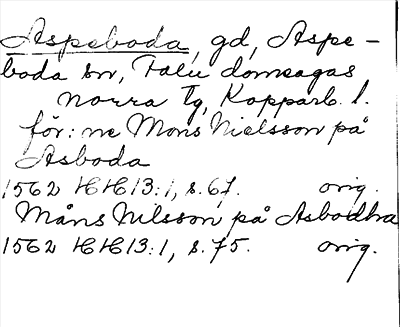 Aspeboda, gd, Aspe-
boda sn, Falu domsagas
norra tg, Kopparb. l.
för: ne Mons Nielsson på
Asboda
1562 HH 13:1, s. 67. orig.
Måns Nilsson på Asbodhra
1562 HH 13:1, s. 75. orig.